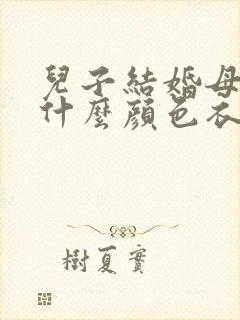 兒子結婚母
什麼顏色衣
樹夏實